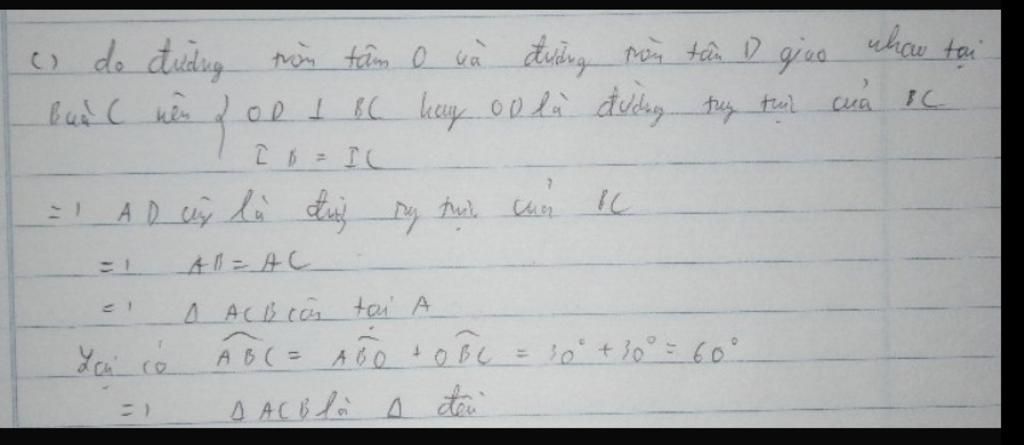 c) do đường tròn tâm O và đường tròn tâm D giao nhau tại
B và C nên { OD ⊥ BC hay OD là đường trung trực của BC
IB = IC
=> AD cũng là đường trung trực của BC
=> AB = AC
=> Δ ACB cân tại A
Lại có \widehat{ABC} = \widehat{ABO} + \widehat{OBC} = 30° + 30° = 60°
=> Δ ACB là Δ đều